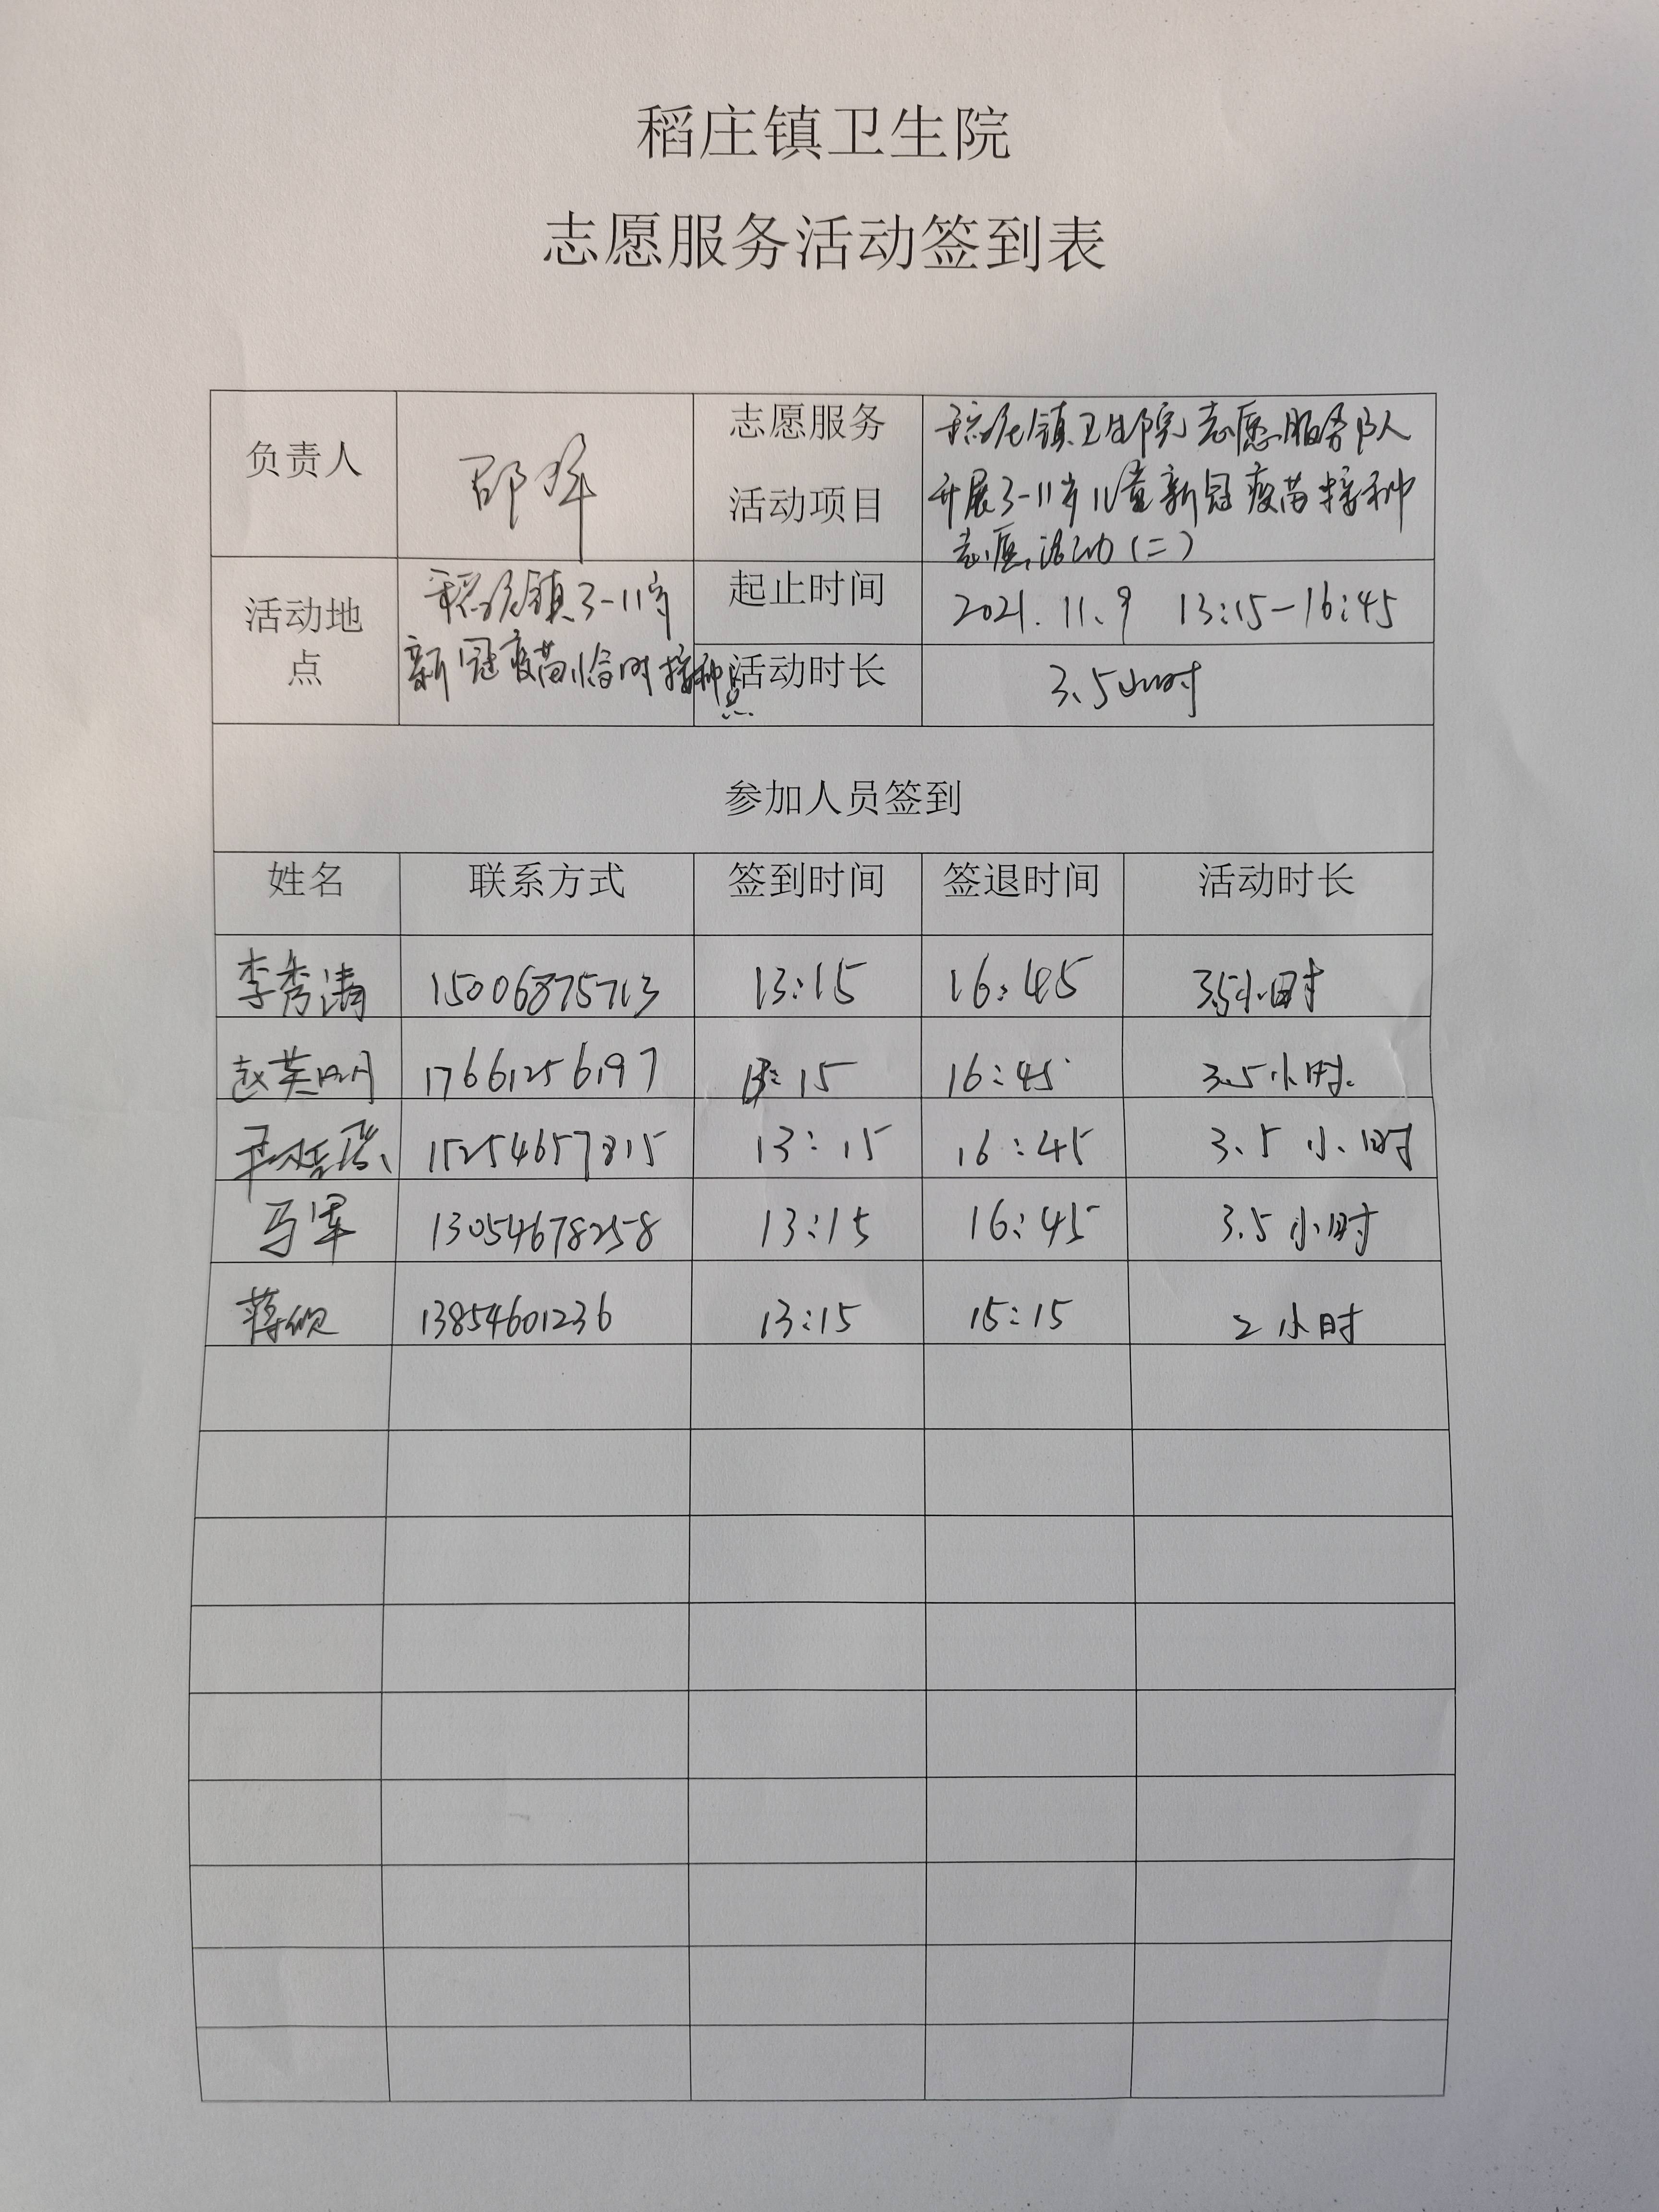 稻庄镇卫生院
志愿服务活动签到表
负责人
邵军
志愿服务
活动项目
稻庄镇卫生院志愿服务队人
开展3-11岁儿童新冠疫苗接种
志愿活动(二)
活动地
点
稻庄镇3-11岁
新冠疫苗临时接种点
起止时间
2021.11.9 13:15-16:45
活动时长
3.5小时
参加人员签到
姓名 联系方式 签到时间 签退时间 活动时长
李秀涛 15006875713 13:15 16:45 3.5小时
赵英明 17661256197 13:15 16:45 3.5小时.
15254657815 13:15 16:45 3.5小时
马军 13054678258 13:15 16:45 3.5小时
蒋 13854601236 13:15 15:15 2小时